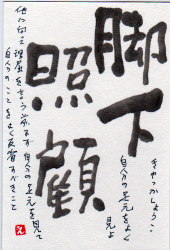 脚下
照顧
きゃっかしょうこ
自分の足元をよく
見よ
他に向って理屈を言う前にまず自分の足元を見て
自分のことをよく反省すべきこと